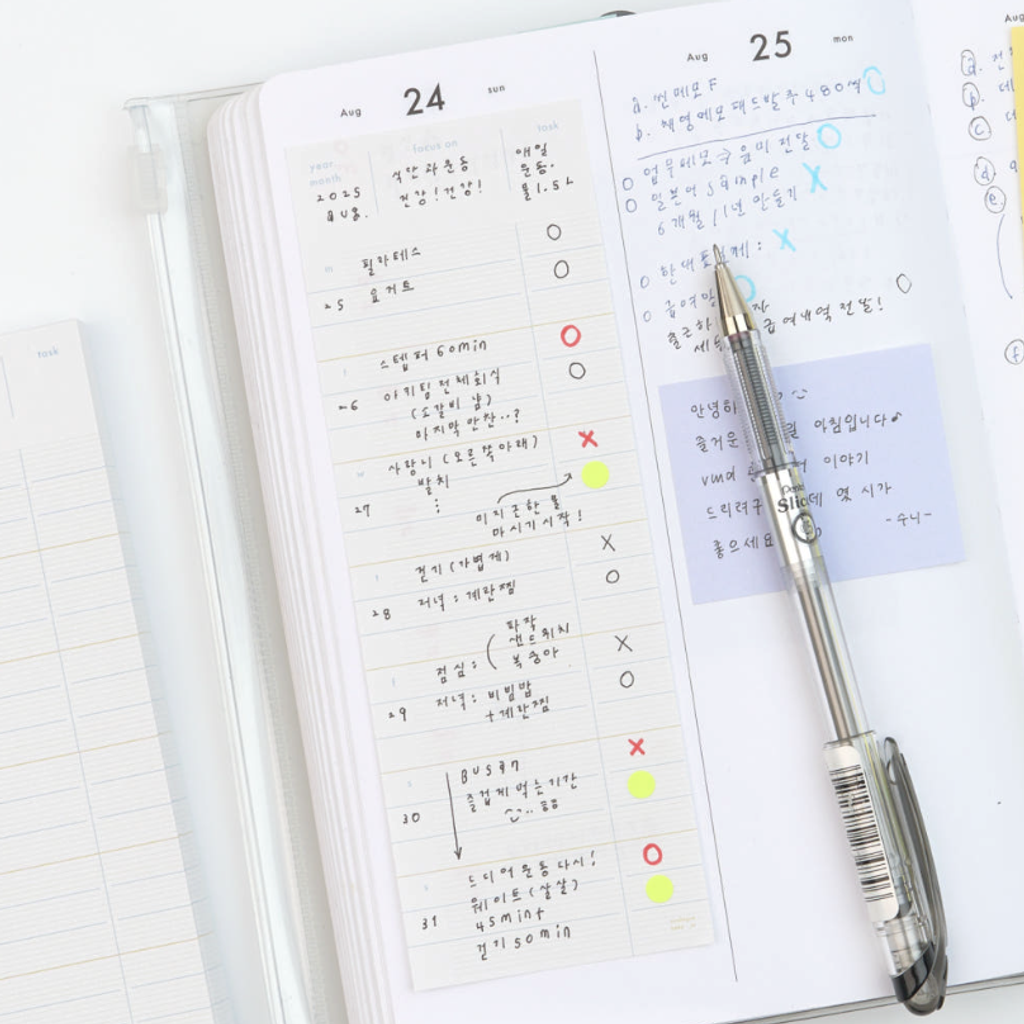 task
Aug 24 sun
year
month
focus on
task
2025
AUG.
식단과 운동
건강! 건강!
매일
운동.
물 1.5L
m
25
필라테스
요거트
26
스텝퍼 60min
아끼팀 전체회식
(소갈비 냠)
마지막 만찬..?
w
27
사랑니 (오른쪽 아래)
발치
:
미지근한 물
마시기 시작!
28
걷기 (가볍게)
저녁 : 계란찜
f
29
점심 :
파작
샌드위치
복숭아
저녁 : 비빔밥
+계란찜
s
30
BUSAN
즐겁게 먹는 기간
s
31
드디어 운동 다시!
웨이트 (살살)
45min +
걷기 50min
Aug 25 mon
a. 씬메모F
b. 재영메모패드발주 480
업무메모 → 음미 전달
일본어 sample
6개월/1년 만들기
급여
출근하
급여내역 전달!
안녕하
즐거운 아침입니다♪
vmd 이야기
드리려구 데 몇 시가
좋으세요
-수니-
Pentel
Slicci
Aug
a.
b.
c.
d.
e.
f